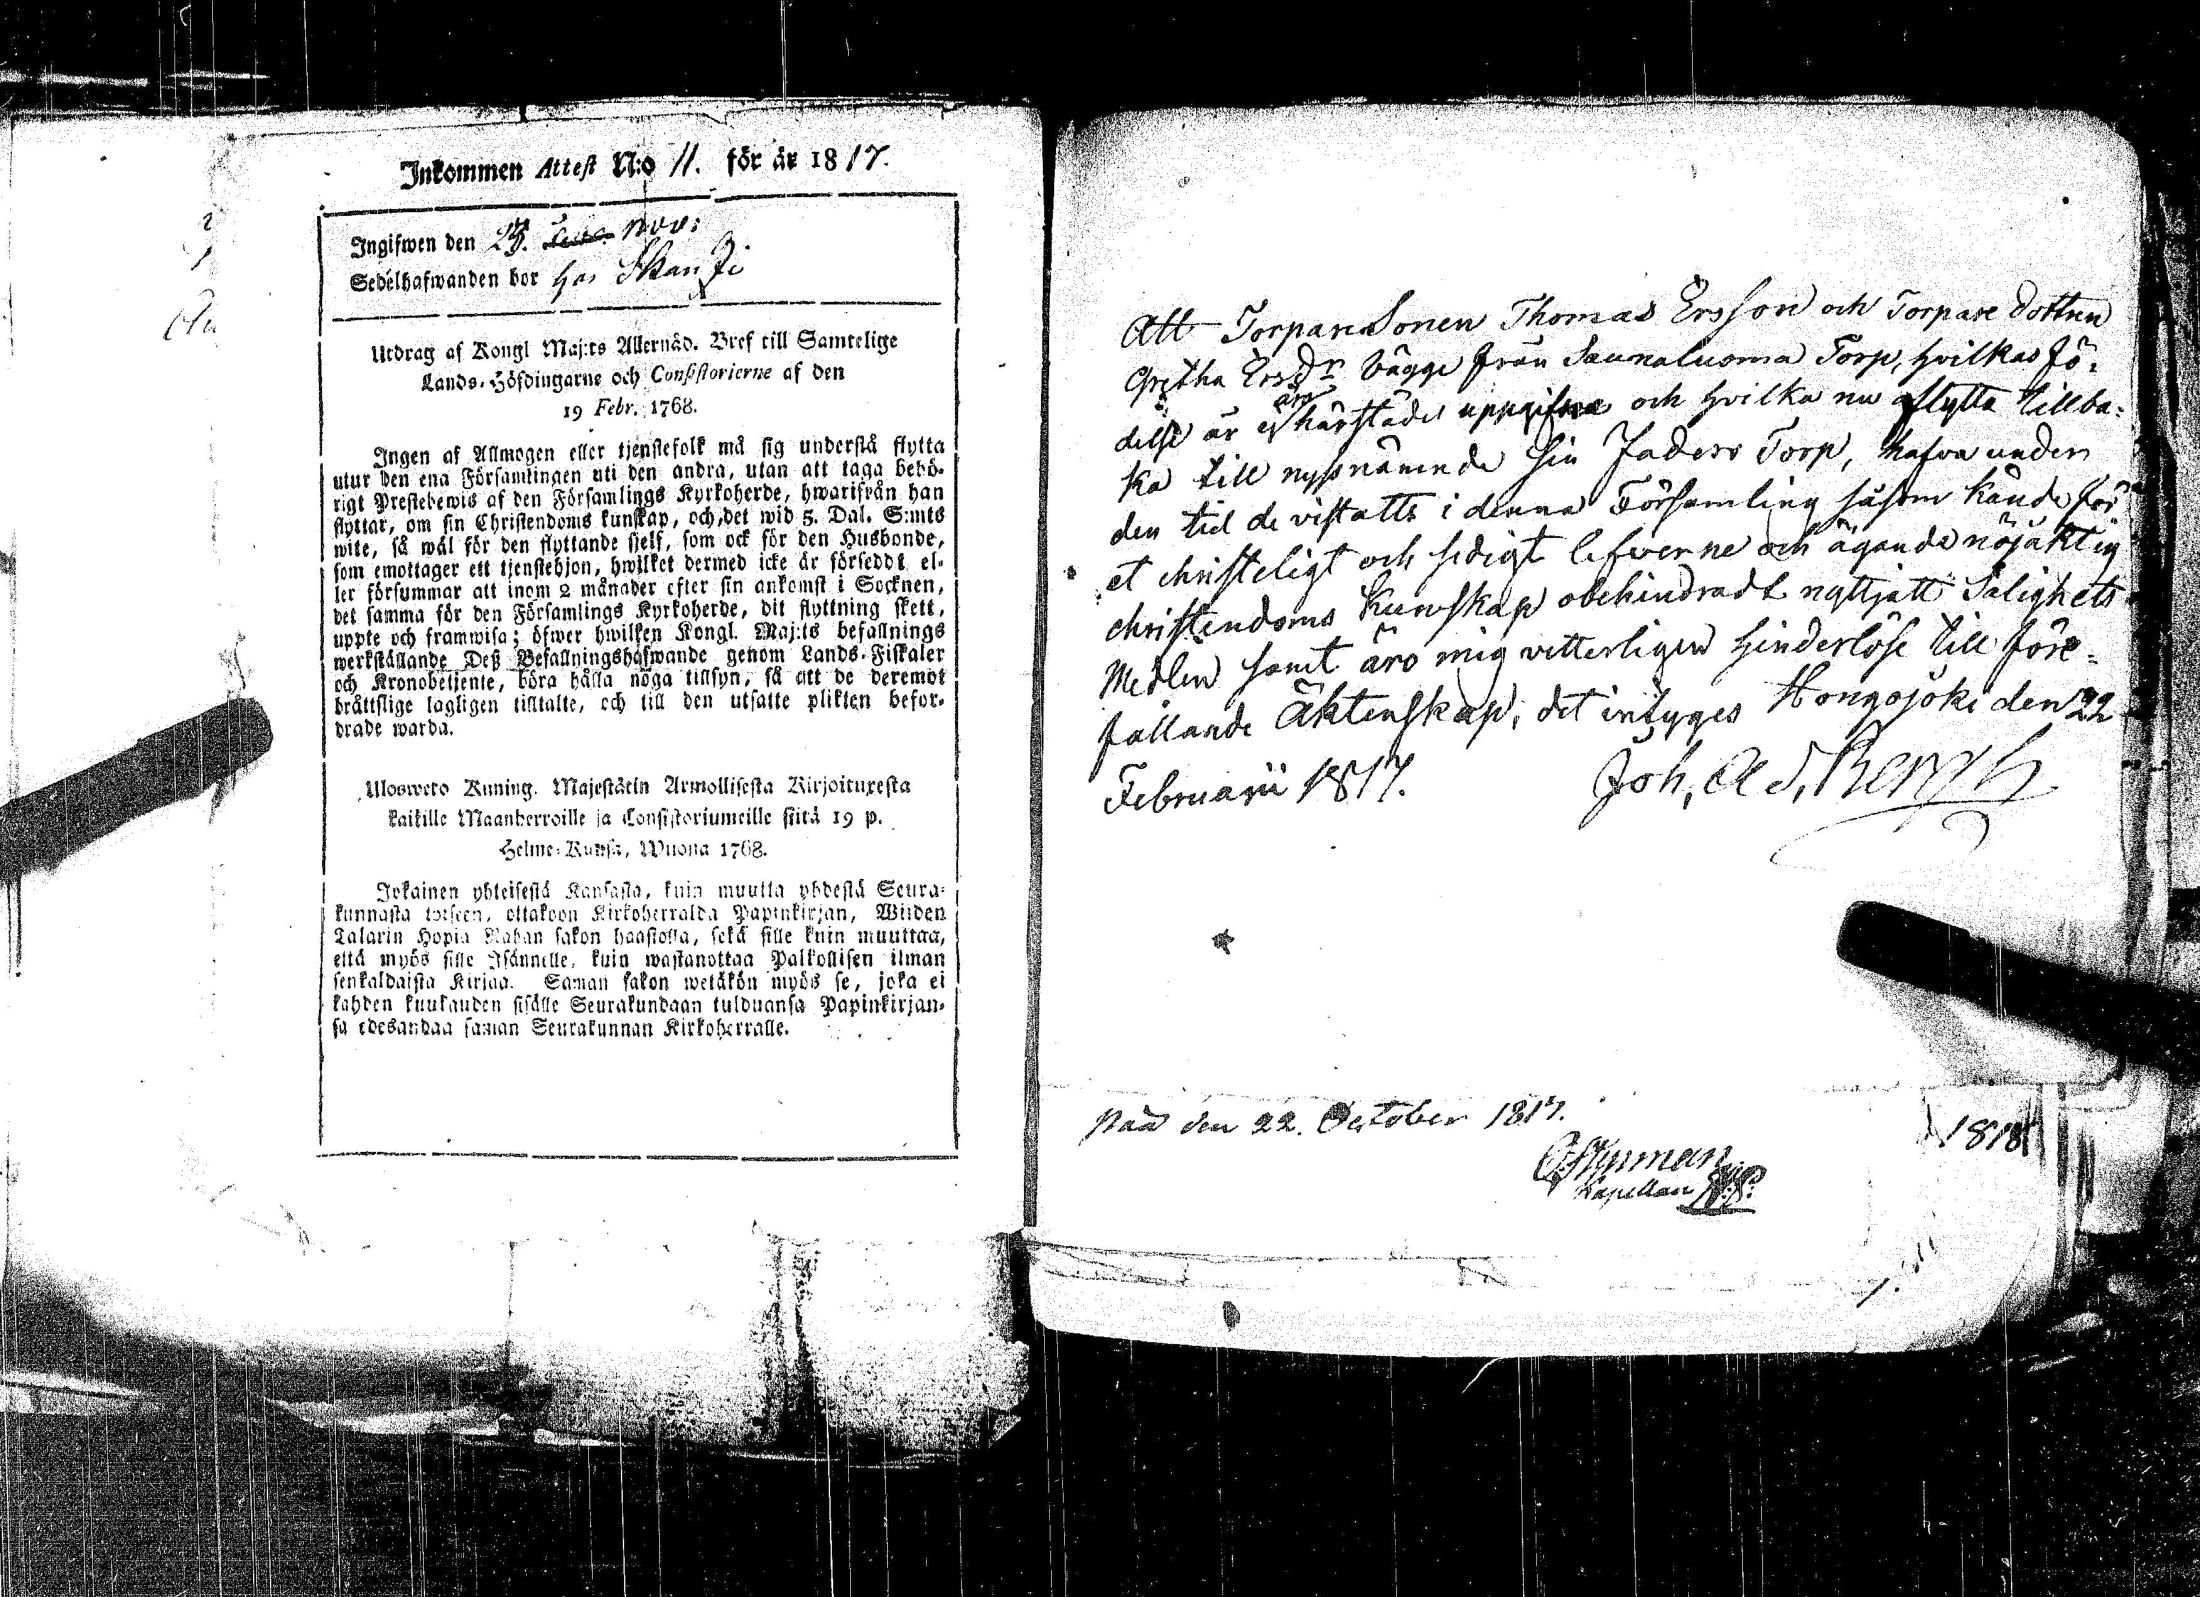 Inkommen Attest N:o 11. för år 1817.
Ingifwen den 23. Nov:
Sedelhafwanden bor hos Skanzi
Utdrag af Kongl Maj:ts Allernåd. Bref till Samtelige
Lands-Höfdingarne och Consistorierne af den
19 Febr. 1768.
Ingen af Allmogen eller tjenstefolk må sig understå flytta
utur den ena Församlingen uti den andra, utan att taga behö-
rigt Prestebewis af den Församlings Kyrkoherde, hwarifrån han
flyttar, om sin Christendoms kunskap, och det wid 5. Dal. S:mts
wite, så wäl för den flyttande sjelf, som ock för den Husbonde,
som emottager ett tjenstehjon, hwilket dermed icke är förseddt el-
ler försummar att inom 2 månader efter sin ankomst i Socknen,
det samma för den Församlings Kyrkoherde, dit flyttning skett,
uppte och framwisa; öfwer hwilken Kongl. Maj:ts befallnings
werkställande Deß Befallningshafwande genom Lands-Fiskaler
och Kronobetjente, böra hålla noga tillsyn, så att de deremot
bråttslige lagligen tilltalte, och till den utsatte plikten befor-
drade warda.
Ulosweto Kuning. Majestätin Armollisesta Kirjoituxesta
kaikille Maanherroille ja Consistoriumeille siitä 19 p.
Helme-Kuusa, Wuona 1768.
Jokainen yhteisestä Kansasta, kuin muutta yhdestä Seura-
kunnasta toiseen, ottakoon Kirkoherralda Papinkirjan, Wiiden
Talarin Hopia Rahan sakon haastolla, sekä sille kuin muuttaa,
että myös sille Isännelle, kuin wastanottaa Palkollisen ilman
senkaldaista Kirjaa. Saman sakon wetäkön myös se, joka ei
kahden kuukauden sisälle Seurakundaan tulduansa Papinkirjan-
sa edesandaa saman Seurakunnan Kirkoherralle.
Att Torparesonen Thomas Ersson och Torpare dottren
Gretha Ersdr bägge från Saunaluoma Torp, hvilkas fö-
delse är ej härstädes uppgifven och hvilka nu aflytta tillba-
ka till nyssnämnde sin Faders Torp, hafva under
den tid de vistatts i denna Församling såsom kände för
et christeligt och sedigt lefverne och ägande nöjaktig
christendoms kunskap obehindradt nyttjatt Salighets
Medlen samt äro mig vetterligen hinderlöse till före-
fallande Äktenskap, det intyges Hongojoki den 22
Februarii 1817. Joh. Ad.
Påa den 22. October 1817.
Kapellan
1818